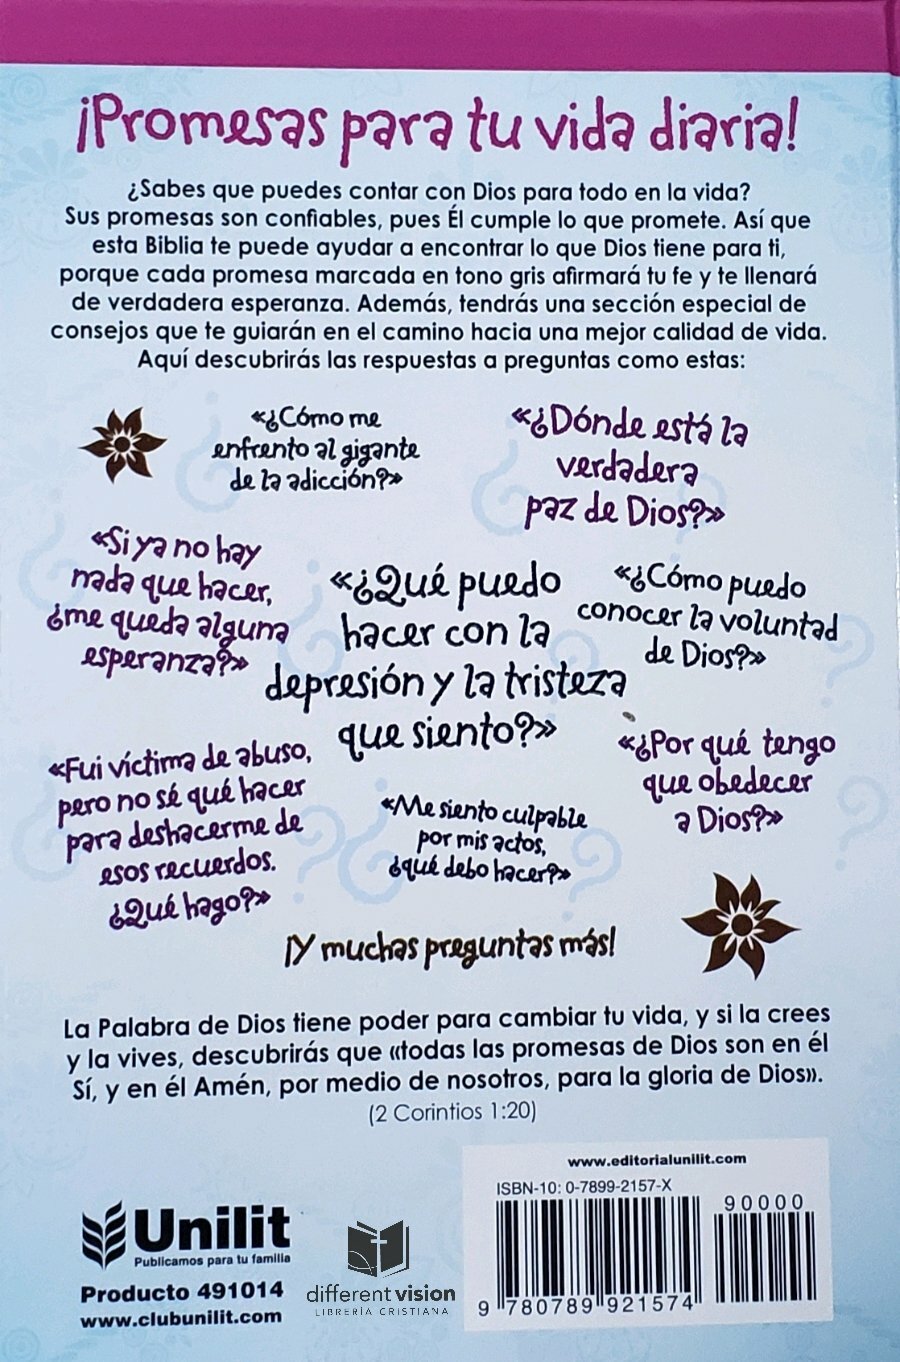 ¡Promesas para tu vida diaria!
¿Sabes que puedes contar con Dios para todo en la vida?
Sus promesas son confiables, pues Él cumple lo que promete. Así que
esta Biblia te puede ayudar a encontrar lo que Dios tiene para ti,
porque cada promesa marcada en tono gris afirmará tu fe y te llenará
de verdadera esperanza. Además, tendrás una sección especial de
consejos que te guiarán en el camino hacia una mejor calidad de vida.
Aquí descubrirás las respuestas a preguntas como estas:
«¿Cómo me
enfrento al gigante
de la adicción?»
«¿Dónde está la
verdadera
paz de Dios?»
«Si ya no hay
nada que hacer,
¿me queda alguna
esperanza?»
«¿Qué puedo
hacer con la
depresión y la tristeza
que siento?»
«¿Cómo puedo
conocer la voluntad
de Dios?»
«Fui víctima de abuso,
pero no sé qué hacer
para deshacerme de
esos recuerdos.
¿Qué hago?»
«Me siento culpable
por mis actos,
¿qué debo hacer?»
«¿Por qué tengo
que obedecer
a Dios?»
¡Y muchas preguntas más!
La Palabra de Dios tiene poder para cambiar tu vida, y si la crees
y la vives, descubrirás que «todas las promesas de Dios son en él
Sí, y en él Amén, por medio de nosotros, para la gloria de Dios».
(2 Corintios 1:20)
Unilit
Publicamos para tu familia
Producto 491014
www.clubunilit.com
different vision
LIBRERÍA CRISTIANA
www.editorialunilit.com
ISBN-10: 0-7899-2157-X
90000
9 780789 921574